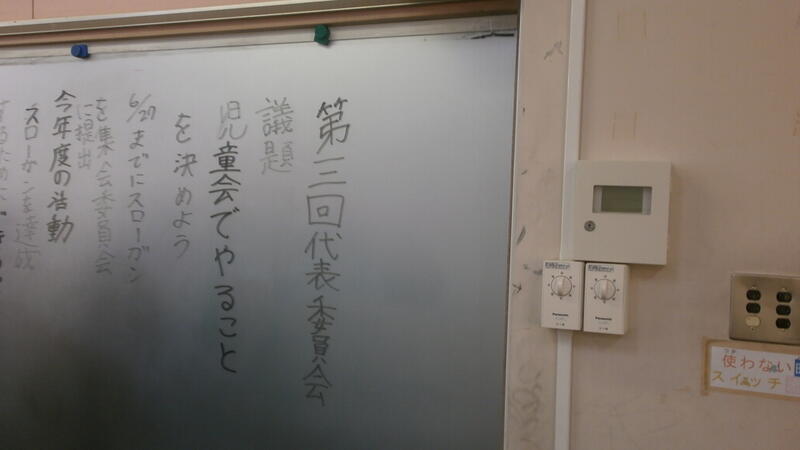 第三回代表委員会
議題
児童会でやること
を決めよう
6/27までにスローガン
を集会委員会
に提出
今年度の活動
スローガンを達成
するために
Panasonic
Panasonic
使わない
つか
スイッチ